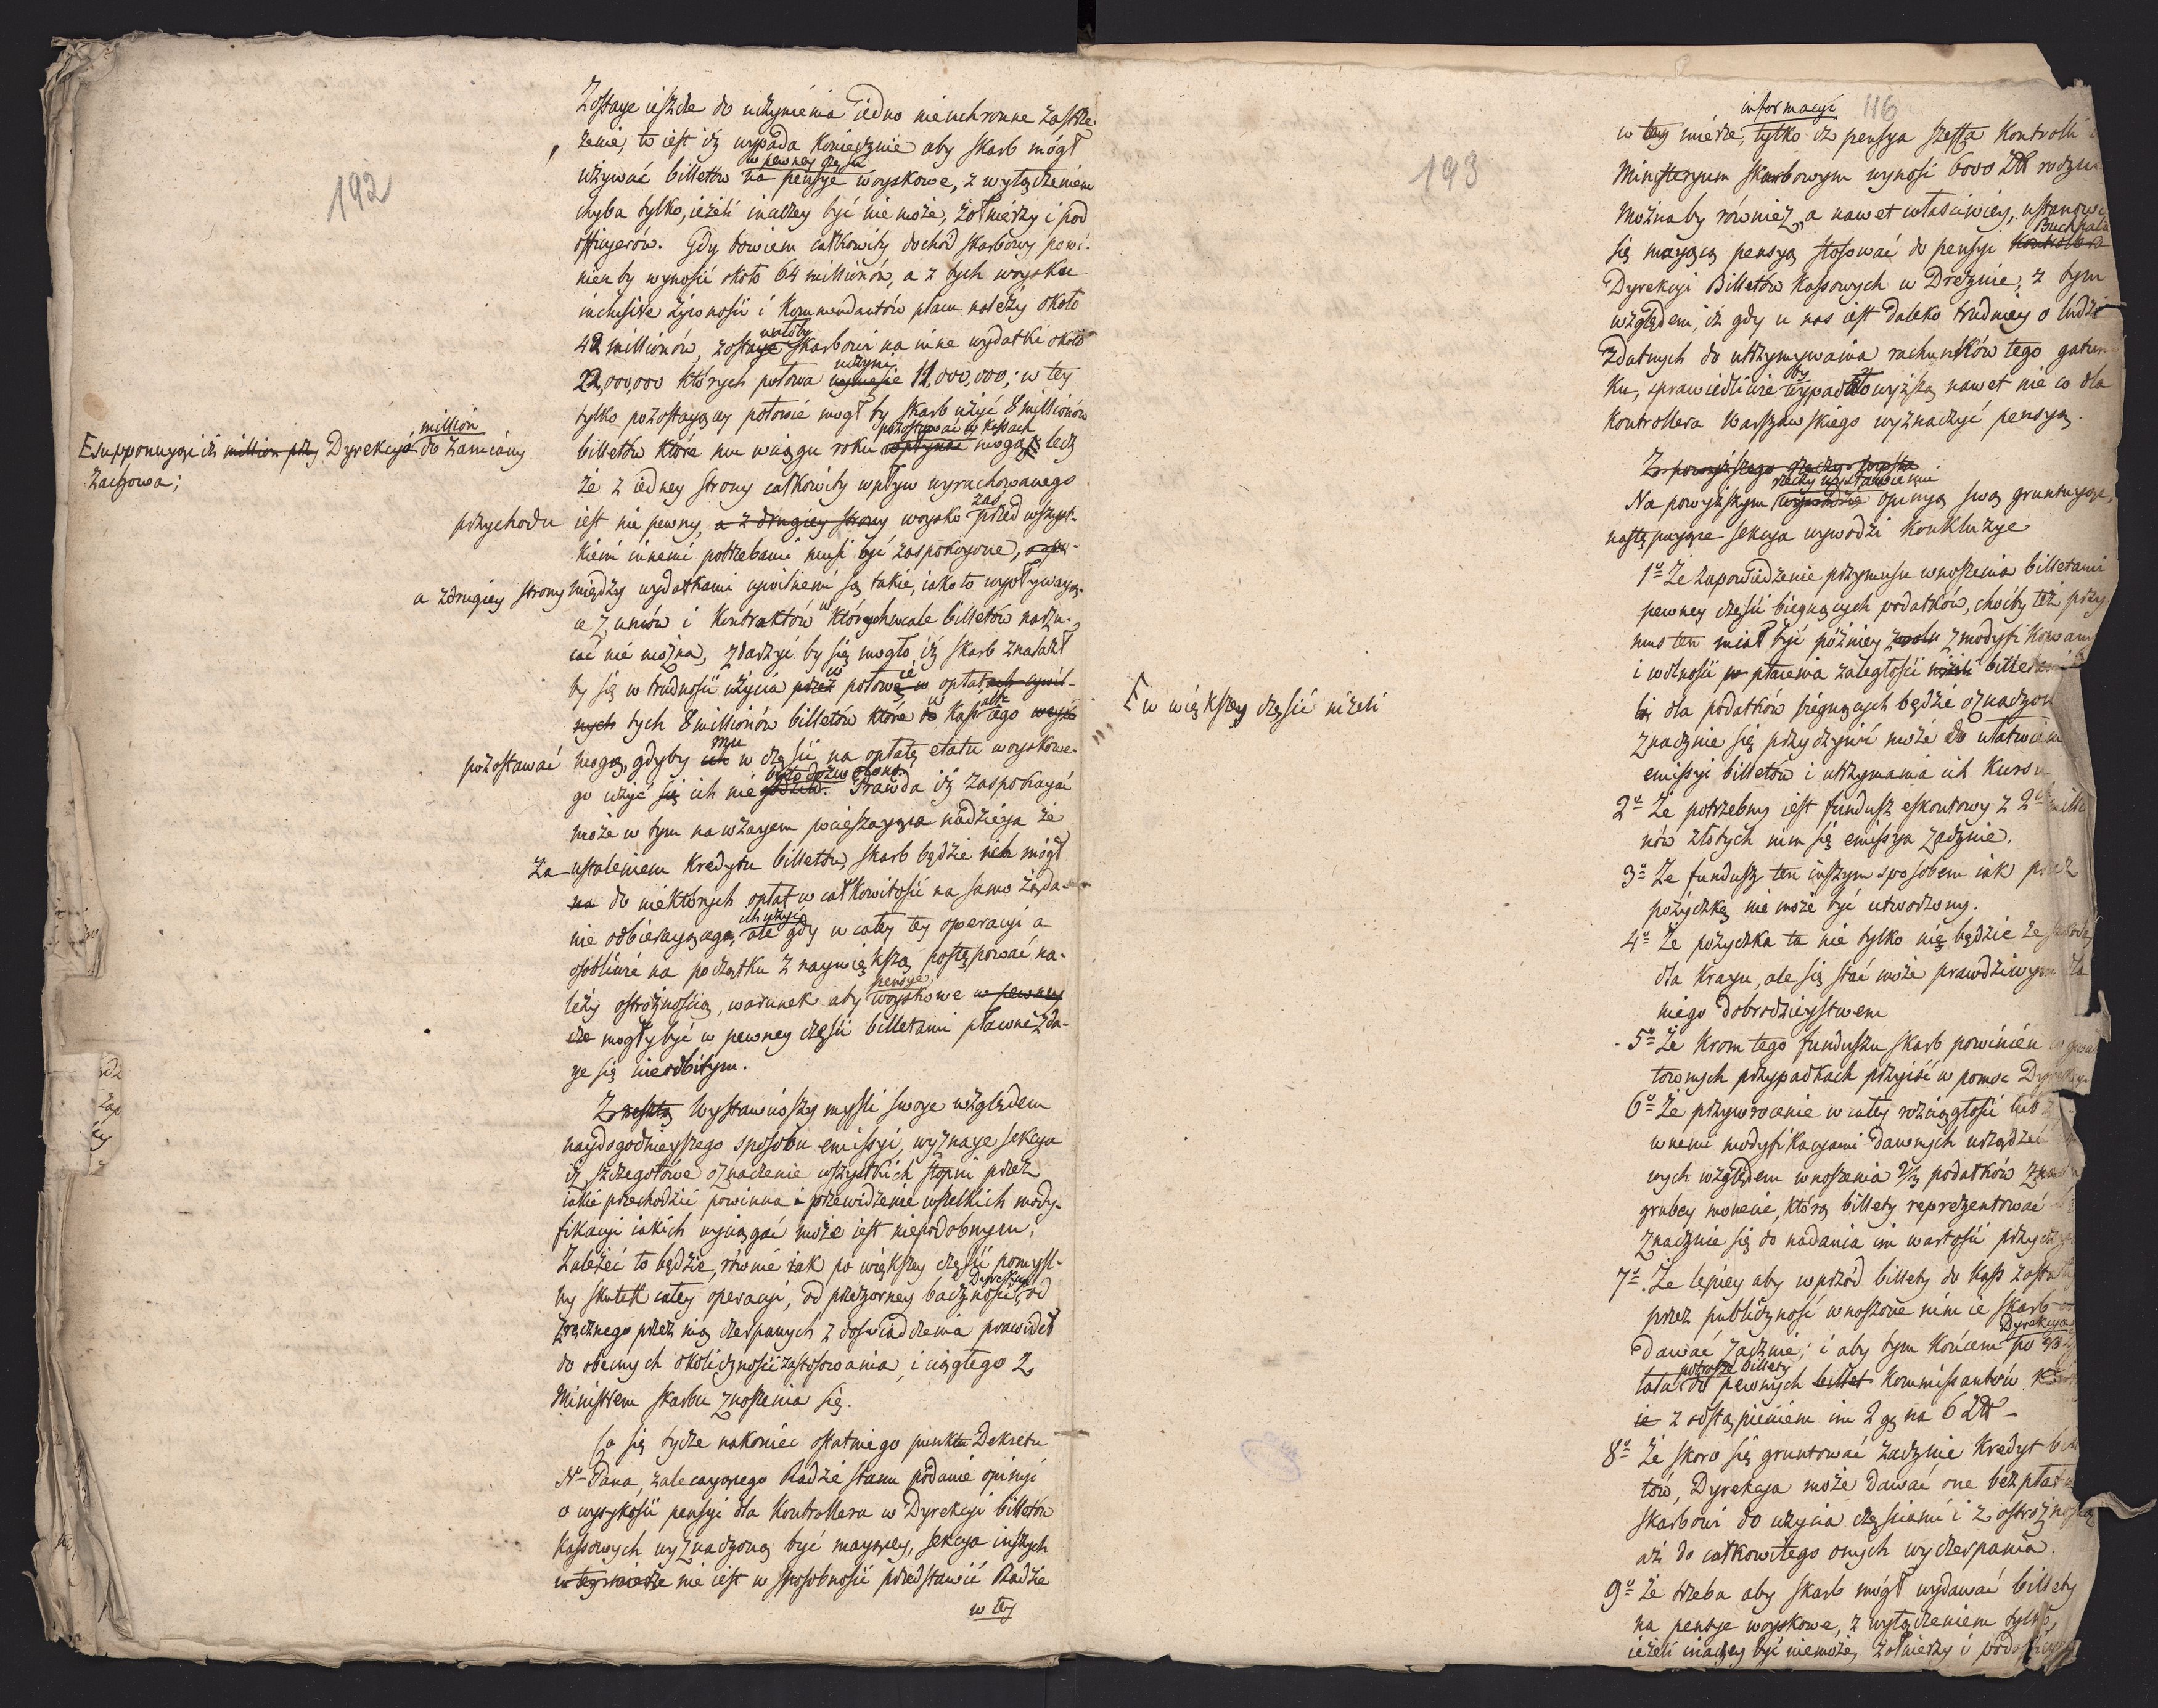 192
Zostaye ieszcze do uczynienia iedno nieuchronne zastrze-
żenie, to iest iż wypada koniecznie aby skarb mógł
w pewney części
używać billetów na pensye woyskowe, z wyłączeniem
chyba tylko, ieżeli inaczey być nie może, żołnierzy i pod
officyerów. Gdy bowiem całkowity dochód skarbowy powi-
nien by wynosić około 64 millionów, a z tych woysku
inclusive żywności i Kommendantów placu należy około
42 millionów, zostaye skarbowi na inne wydatki około
22,000,000 których połowa uczyni wyniesie 11,000,000; w tey
tylko pozostayącey połowie mogł by skarb użyć 8 millionów
million
E Supponuyąc iż million przy Dyrekcya do zamiany
zachowa;
pozostawać w kassach
billetów które mu w ciągu roku wpłynąć mogą; lecz
że z iedney strony całkowity wpływ wyrachowanego
przychodu iest nie pewny, a z drugiey strony woysko zaś przed wszyst-
kiemi innemi potrzebami musi być zaspokoyone,
a z drugiey strony między wydatkami cywilnemi są takie, iako to wypływaiąc-
e z umów i Kontraktów w których wcale billetów narzu-
cać nie można, zdarzyć by się mogło iż skarb znalazł
by się w trudności użycia przez w połowie w opłatach cywil-
nych tych 8 millionów billetów które w kassie tego
pozostawać mogą, gdyby mu ich w części na opłatę etatu woyskowe-
było dozwolono.
go użyć się ich nie godziło. Prawda iż zaspokaiać
może w tym na wzaiem pocieszaiąca nadzieya że
za ustaleniem Kredytu billetów, skarb będzie ich mógł
na do niektórych opłat w całkowitości na samo żąda-
ich użyć
nie odbieraiącego, ale gdy w całey tey operacyi a
osobliwie na początku z naywiększą postępować na-
leży ostrożnością, warunek aby pensye woyskowe w pewney
cze mogły być w pewney części billetami płacone zda-
ye się nieodbitym.
Z resztą Wystawiwszy myśli swoje względem
naydogodnieyszego sposobu emissyi, wyznaye sekcya
iż szczegółowe oznaczenie wszystkich stopni przez
iakie przechodzić powinna i przewidzenie wszelkich mody-
fikacyi iakich wyciągać może iest niepodobnym.
Zależeć to będzie, równie iak po większey części pomyśl-
ny skutek całey operacyi, od przezorney baczności Dyrekcyi, od
zręcznego przez nią czerpanych z doświadczenia prawideł
do obecnych okoliczności zastosowania, i ciągłego z
Ministrem skarbu znoszenia się.
Co się tycze nakoniec ostatniego punktu Dekretu
N. Pana, zalecaiącego Radzie stanu podanie opinyi
o wysokości pensyi dla Kontrollera w Dyrekcyi billetów
Kassowych wyznaczoną być maiącey, sekcya inszych
w tey mierze nie iest w sposobności przedstawić Radzie
w tey
193
E w większey części niżeli
116
informacyi
w tey mierze, tylko iż pensya szefa Kontrolli
Ministeryum skarbowym wynosi 6000 Złt
Można by również, a nawet właściwiey,
się maiącą pensyą stosować do pensyi
Dyrekcyi Billetów Kassowych w Dreznie, z tym
względem, iż gdy u nas iest daleko trudniey o ludzi
zdatnych do utrzymywania rachunków tego gatun
ku, sprawiedliwie by wypadało wyższą nawet nieco dla
Kontrollera Warszawskiego wyznaczyć pensyą.
Z powyższego
rzeczy wystawieniu
Na powyższym opinyą swą gruntuiąc,
następuiące sekcya wywodzi konkluzye
1º Że zapowiedzenie przymusu wnoszenia billetami
pewney części bieguących podatków, choćby też przy
mus ten miał być później zmodyfikowany
i wolności w płacenia zaległości
dla podatków bieguących będzie
znacznie się przyczynić może do ułatwienia
emissyi billetów i utrzymania ich Kursu
2º Że potrzebny iest fundusz eskontowy z 2ch millio
nów złotych nim się emissya zacznie.
3º Że fundusz ten inszym sposobem iak przez
pożyczkę nie może być utworzony.
4º Że pożyczka ta nie tylko nie będzie ze szkodą
dla Kraiu, ale się stać może prawdziwym dla
niego dobrodzieystwem
5º Że krom tego funduszu skarb powinien
townych przypadkach przyiść w pomoc
6º Że przywrócenie w całey rozciągłości lub
wnemi modyfikacyami dawnych urządzeń
nych względem wnoszenia 2/3 podatków
grubey monecie, którą billety reprezentować
znacznie się do nadania im wartości
7º Że lepiey aby wprzód billety do Kass
przez publiczność wnoszone nim ie skarb
dawać zacznie; i aby tym końcem Dyrekcya
billety
pewnych Kommissantów
ie z odstąpieniem im 2 gr na 6 Złt
8º Że skoro się gruntować zacznie Kredyt
tów, Dyrekcya może dawać one bezpłatnie
skarbowi do użycia częściami i z ostrożnością
aż do całkowitego onych wyczerpania.
9º Że trzeba aby skarb mógł wydawać billety
na pensye woyskowe, z wyłączeniem tylko,
ieżeli inaczey być niemoże, żołnierzy i